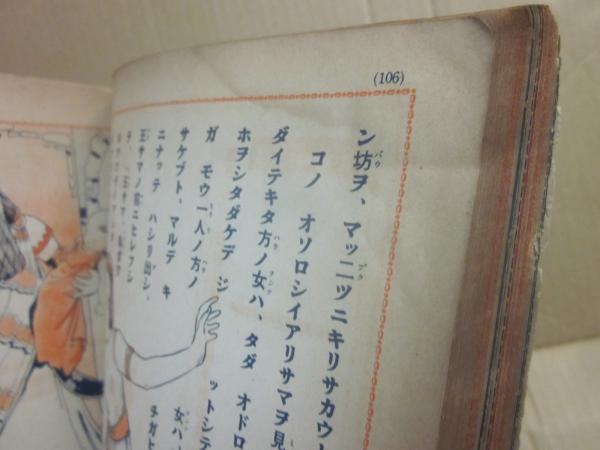 (106)
ン坊ヲ、マッ二ツニキリサカウ
コノ オソロシイアリサマヲ見
ダイテキタ方ノ女ハ、タダ オドロ
ホヲシタダケデ ジットシテ
ガ モウ一人ノ方ノ女ハ、
サケブト、マルデ キチガヒ
ニナッテ ハシリ出シ、
王サマノ前ニヒレフシ